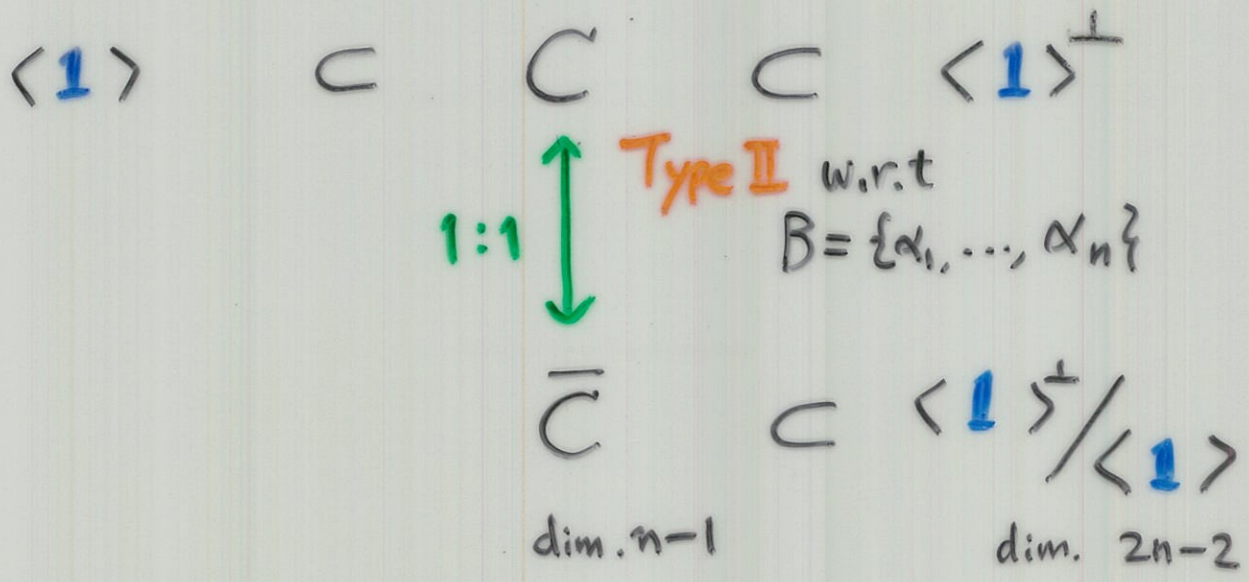 <1> ⊂ C ⊂ <1>⊥
Type II w.r.t
1:1 B={α₁, ..., αₙ}
C̅ ⊂ <1>⊥/<1>
dim. n-1 dim. 2n-2